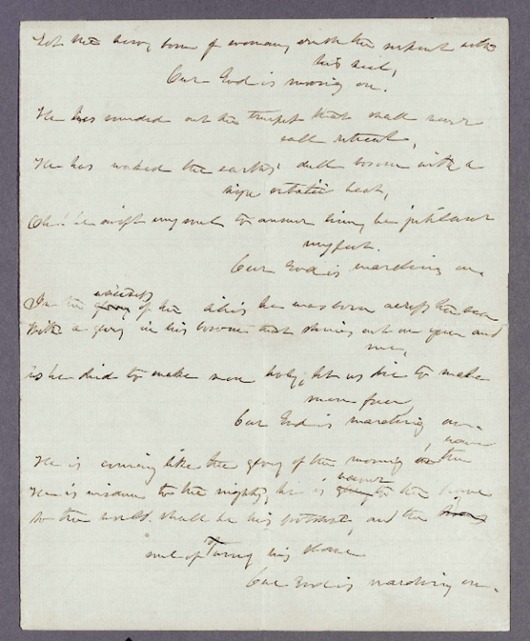 Let the hero, born of woman, crush the serpent with
his heel,
Our God is marching on.
He has sounded out the trumpet that shall never
call retreat,
He has waked the earth's dull bosom with a
high ecstatic beat,
Oh! be swift my soul to answer him, be jubilant
my feet.
Our God is marching on.
In the whiteness glory of the lilies he was born across the sea
With a glory in his bosom that shines out on you and
me,
As he died to make men holy, let us die to make
men free,
Our God is marching on.
He is coming like the glory of the morning on the wave
He is wisdom to the mighty, he is succour to the brave
So the world shall be his footstool, and the soul
of Time his slave
Our God is marching on.